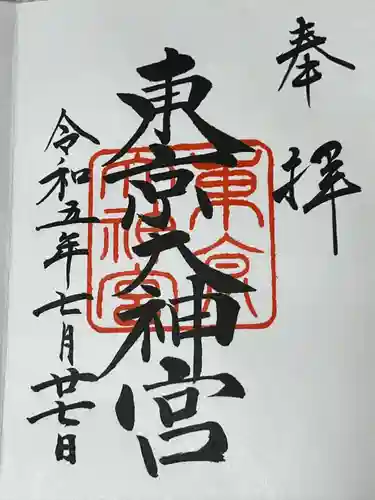 奉拝
東京大神宮
東京大神宮
令和五年七月廿七日